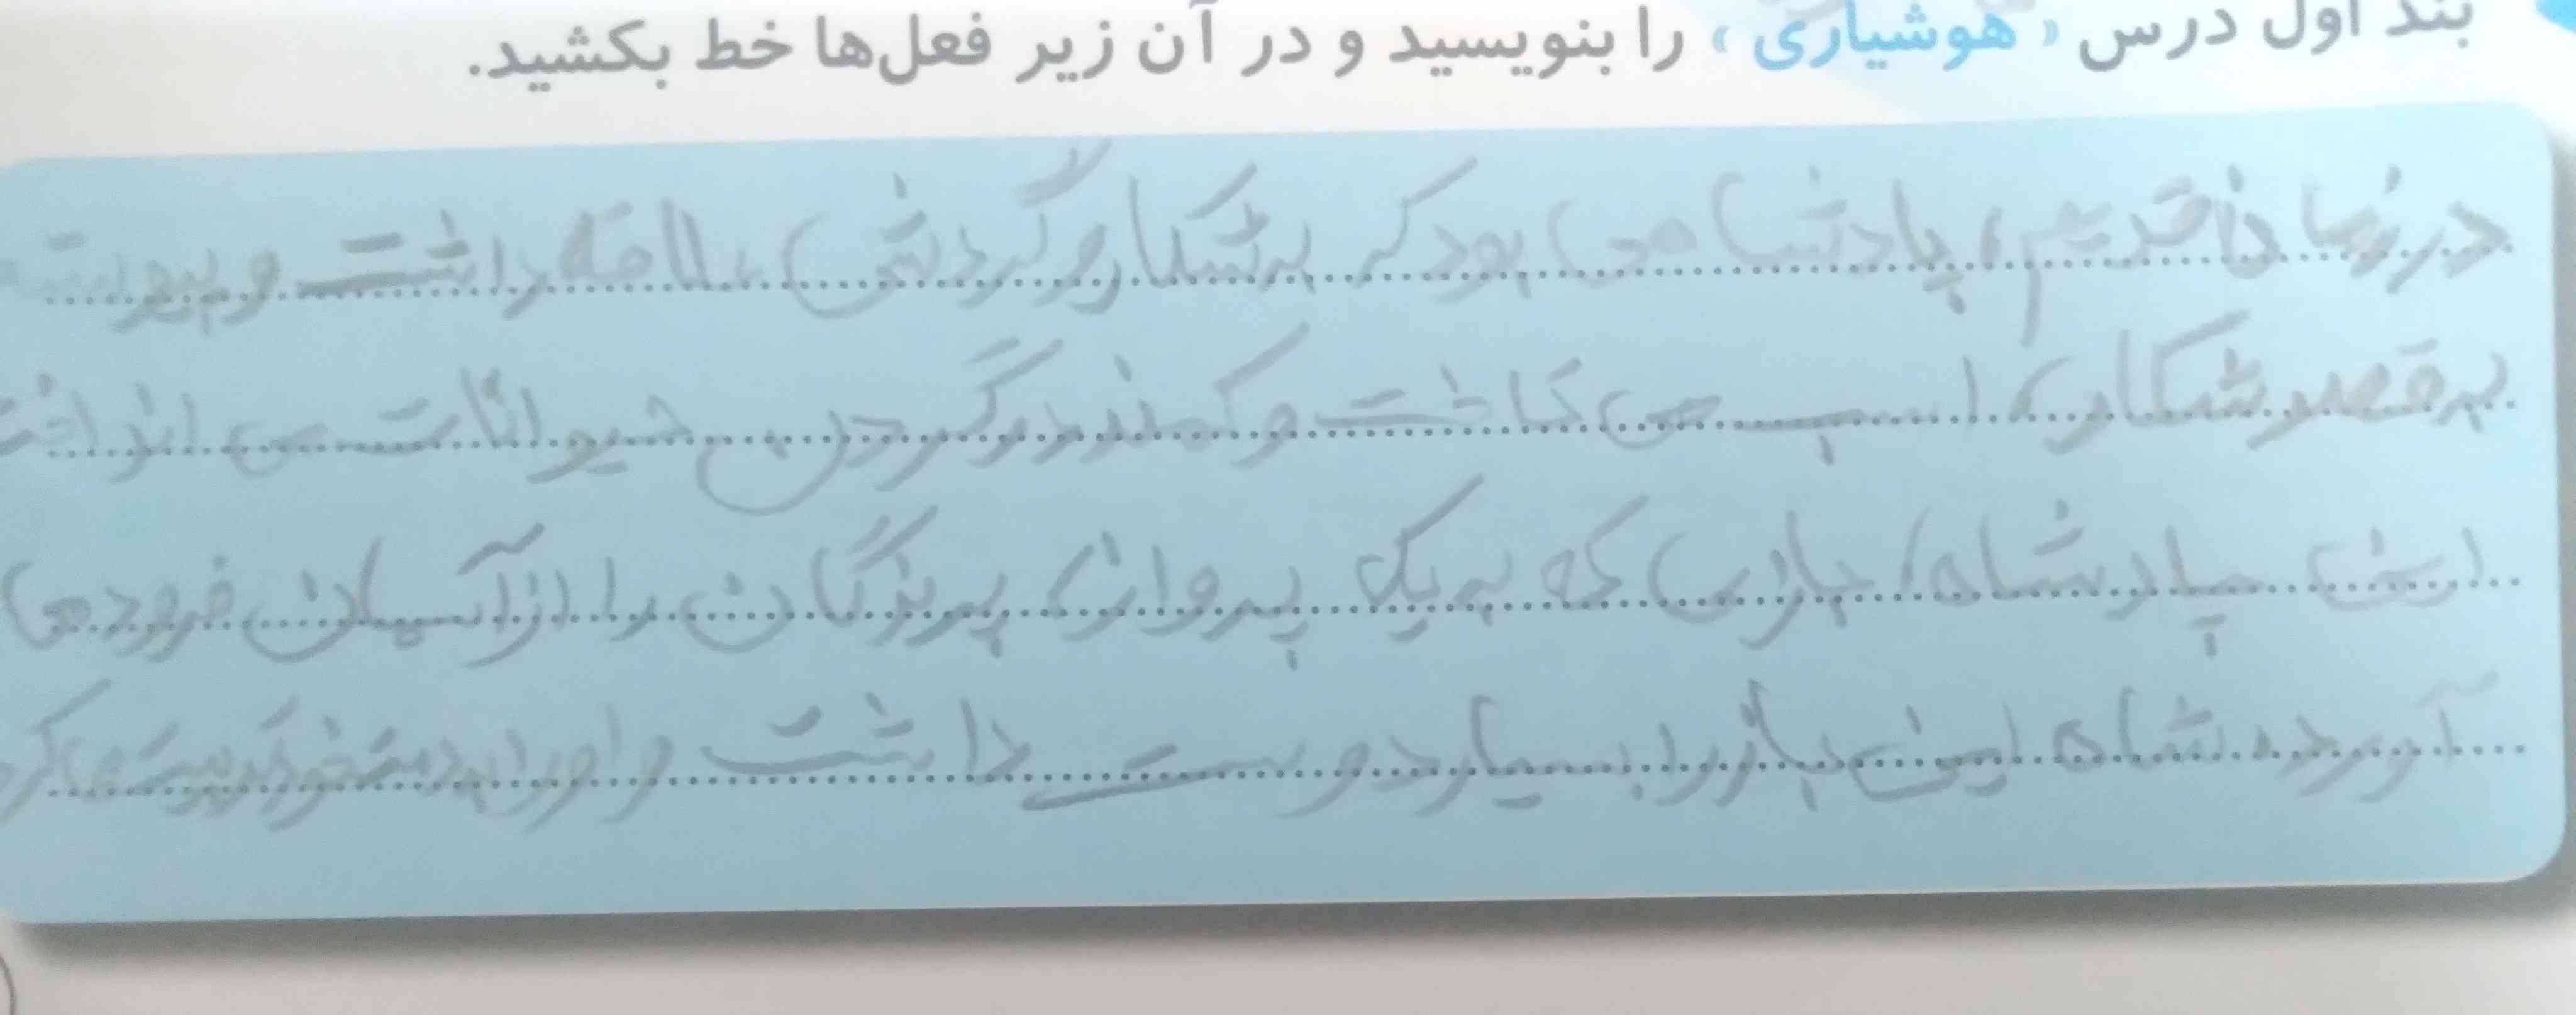 بند اول درس « هوشیاری » را بنویسید و در آن زیر فعل‌ها خط بکشید.
در زمان قدیم، پادشاهی بود که به شکار و گردش علاقه داشت و پیوسته
به قصد شکار، اسب می تاخت و کمند در گردن حیوانات می انداخت
این پادشاه، بازی که به یک پرواز، پرندگان را از آسمان فرود می
آورد. شاه این باز را بسیار دوست داشت و او را به دست خود تربیت می کرد